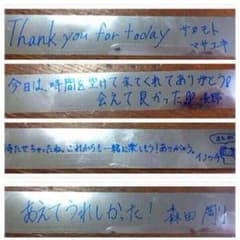 Thank you for today サカモト
マサユキ
今日は、時間を空けて来てくれてありがとう!
会えて良かった 長野
待たせちゃったね。これからも一緒に楽しもう!ありがとう。 イノッチ
あえてうれしかった! 森田 剛